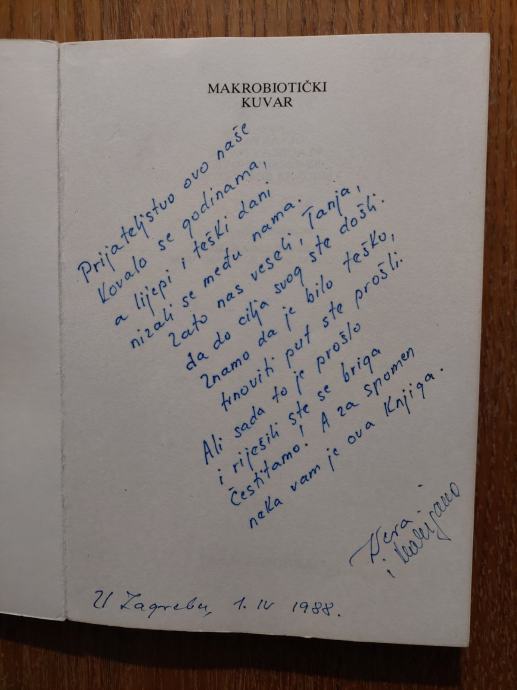 MAKROBIOTIČKI
KUVAR
Prijateljstvo ovo naše
Kovalo se godinama,
a lijepi i teški dani
nizali se među nama.
Zato nas veseli, Tanja,
da do cilja svog ste došli.
Znamo da je bilo teško,
trnoviti put ste prošli.
Ali sada to je prošlo
i riješili ste se briga
Čestitamo! A za spomen
neka vam je ova Knjiga.
Vera
i
U Zagrebu, 1. IV 1988.